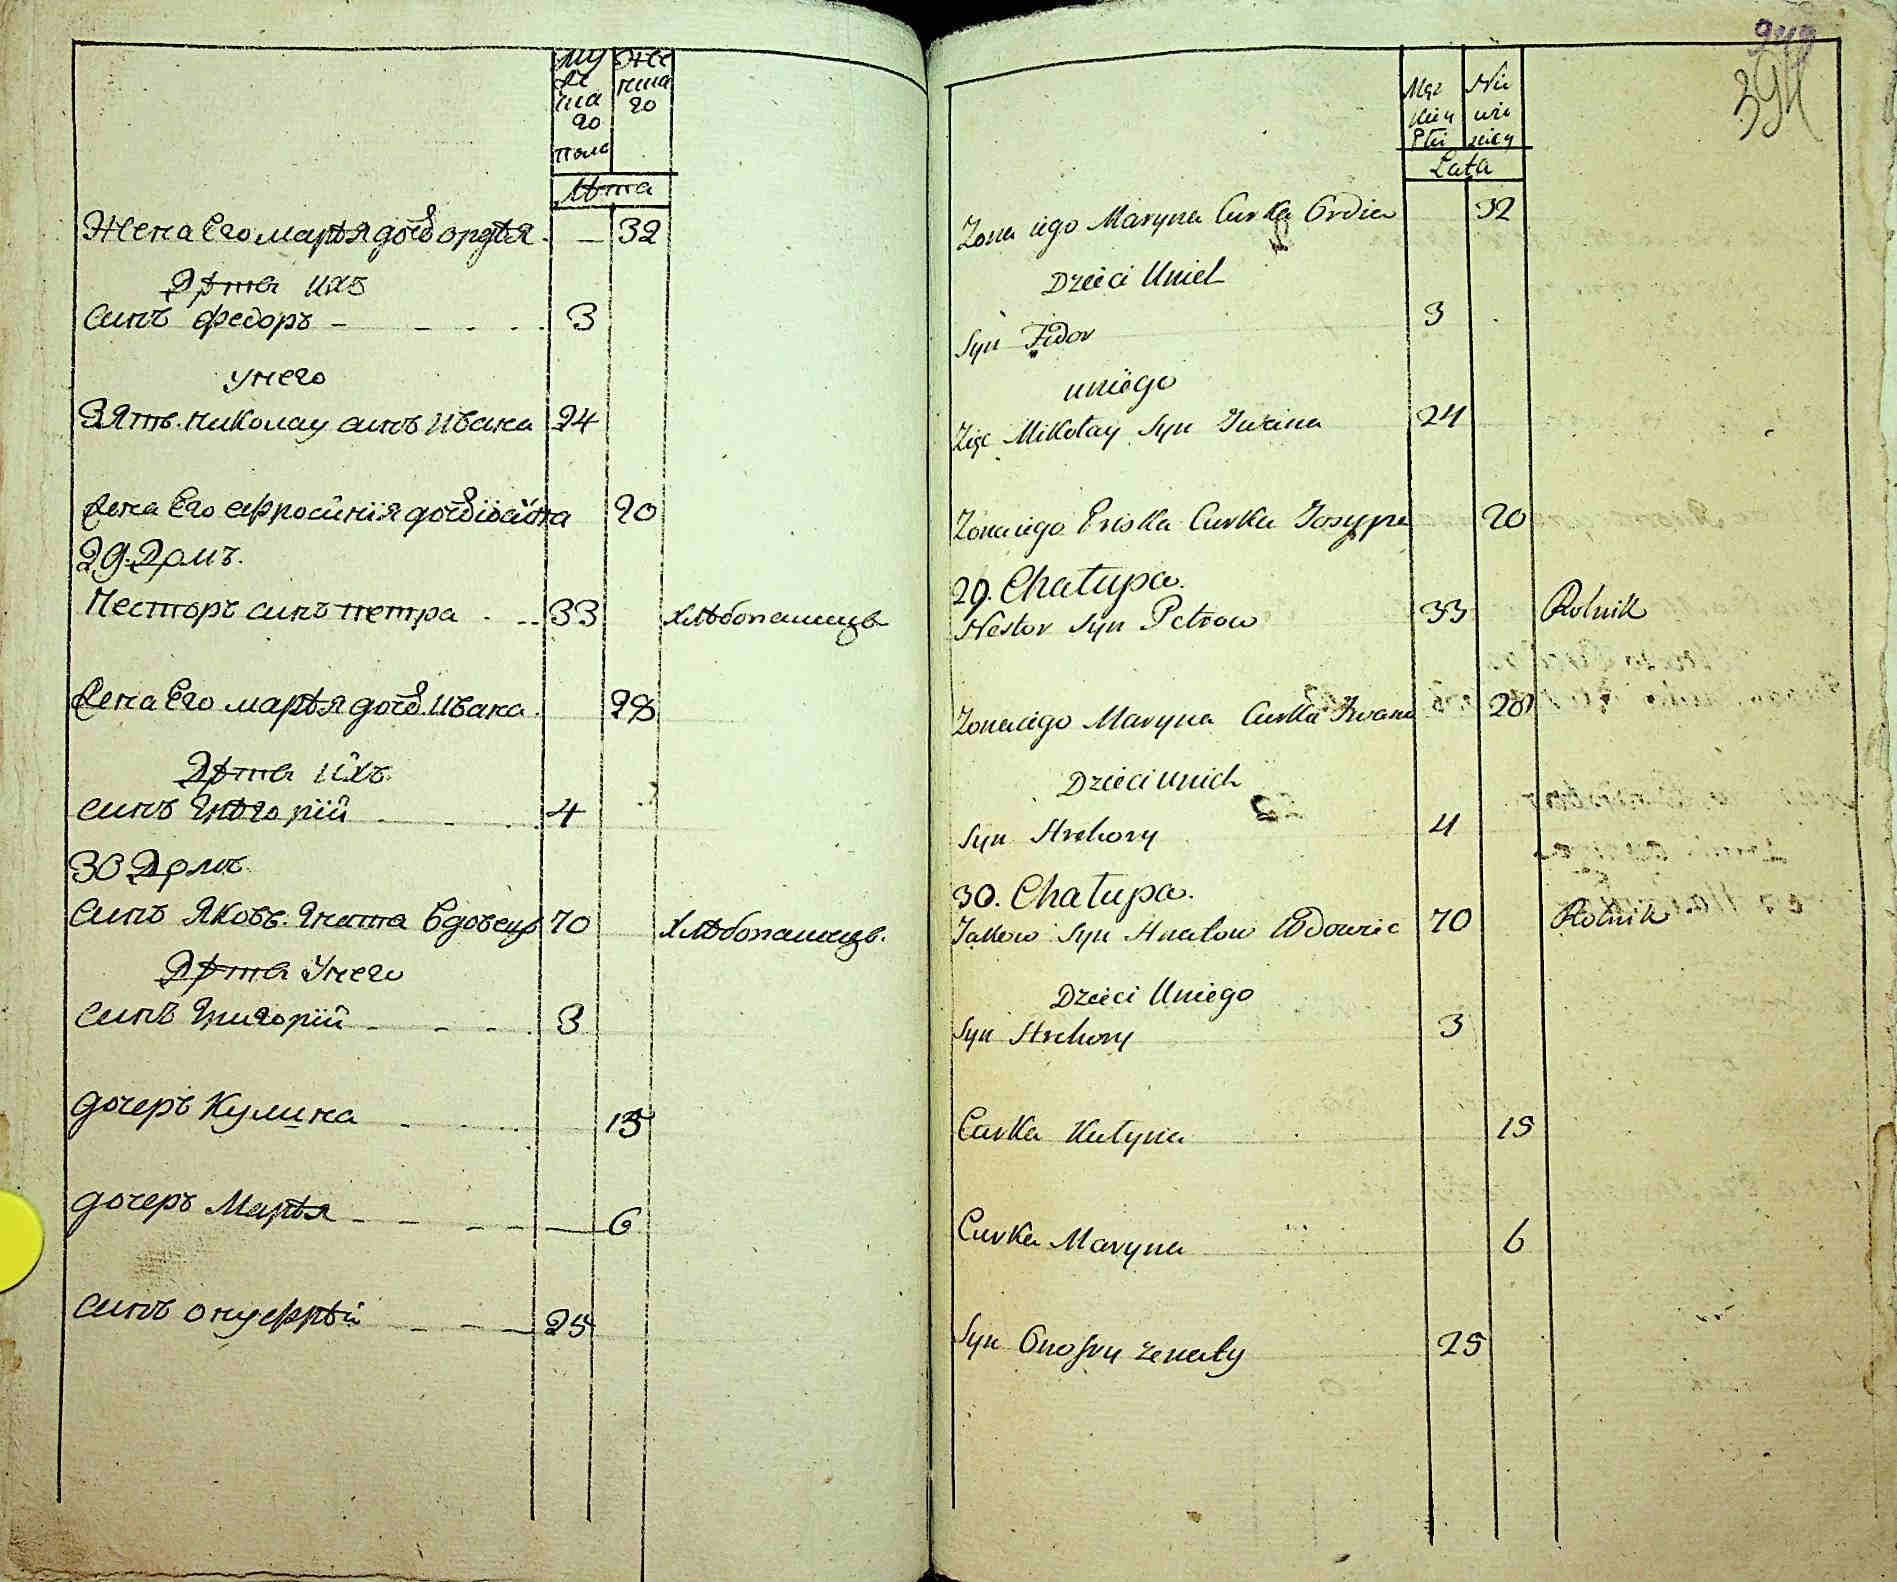 му же
же нска
ска го
го
полъ
Лѣта
Жена Его марѣя дочь ордѣя - 32
Дѣти ихъ
синъ федоръ - - - 3
Унего
Зять николай синъ ивана 24
Жена Его ефросинія дочь 20
29. Домъ.
Несторъ синъ петра - - 33 хлѣбопашецъ
Жена Его марѣя дочь ивана 28
Дѣти ихъ.
синъ Григорій - - 4
30 Домъ
синъ Яковъ. Гната вдовецъ 70 хлѣбопашецъ.
Дѣти Унего
синъ Григорій - - - 3
дочеръ Кулина - - 15
дочеръ Марѣя - - - - 6
синъ онуфрѣй - - - 25
949
394
Męz Nie
kiey wie
Płci sciey
Lata
Zona iego Maryna Curka Ordia 32
Dzieci Unich
Syn Fidor 3
uniego
Zięc Mikołay Syn Iwana 24
Zona iego Priska Curka Iosypa 20
29. Chałupa.
Nestor Syn Petrow 33 Rolnik
Zona iego Maryna Curka Iwana 28
Dzieci unich
Syn Hrehory 4
30. Chałupa.
Jakow Syn Hnatow Wdowiec 70 Rolnik
Dzieci Uniego
Syn Hrehory 3
Curka Kulyna 15
Curka Maryna 6
Syn Onofry zenaty 25